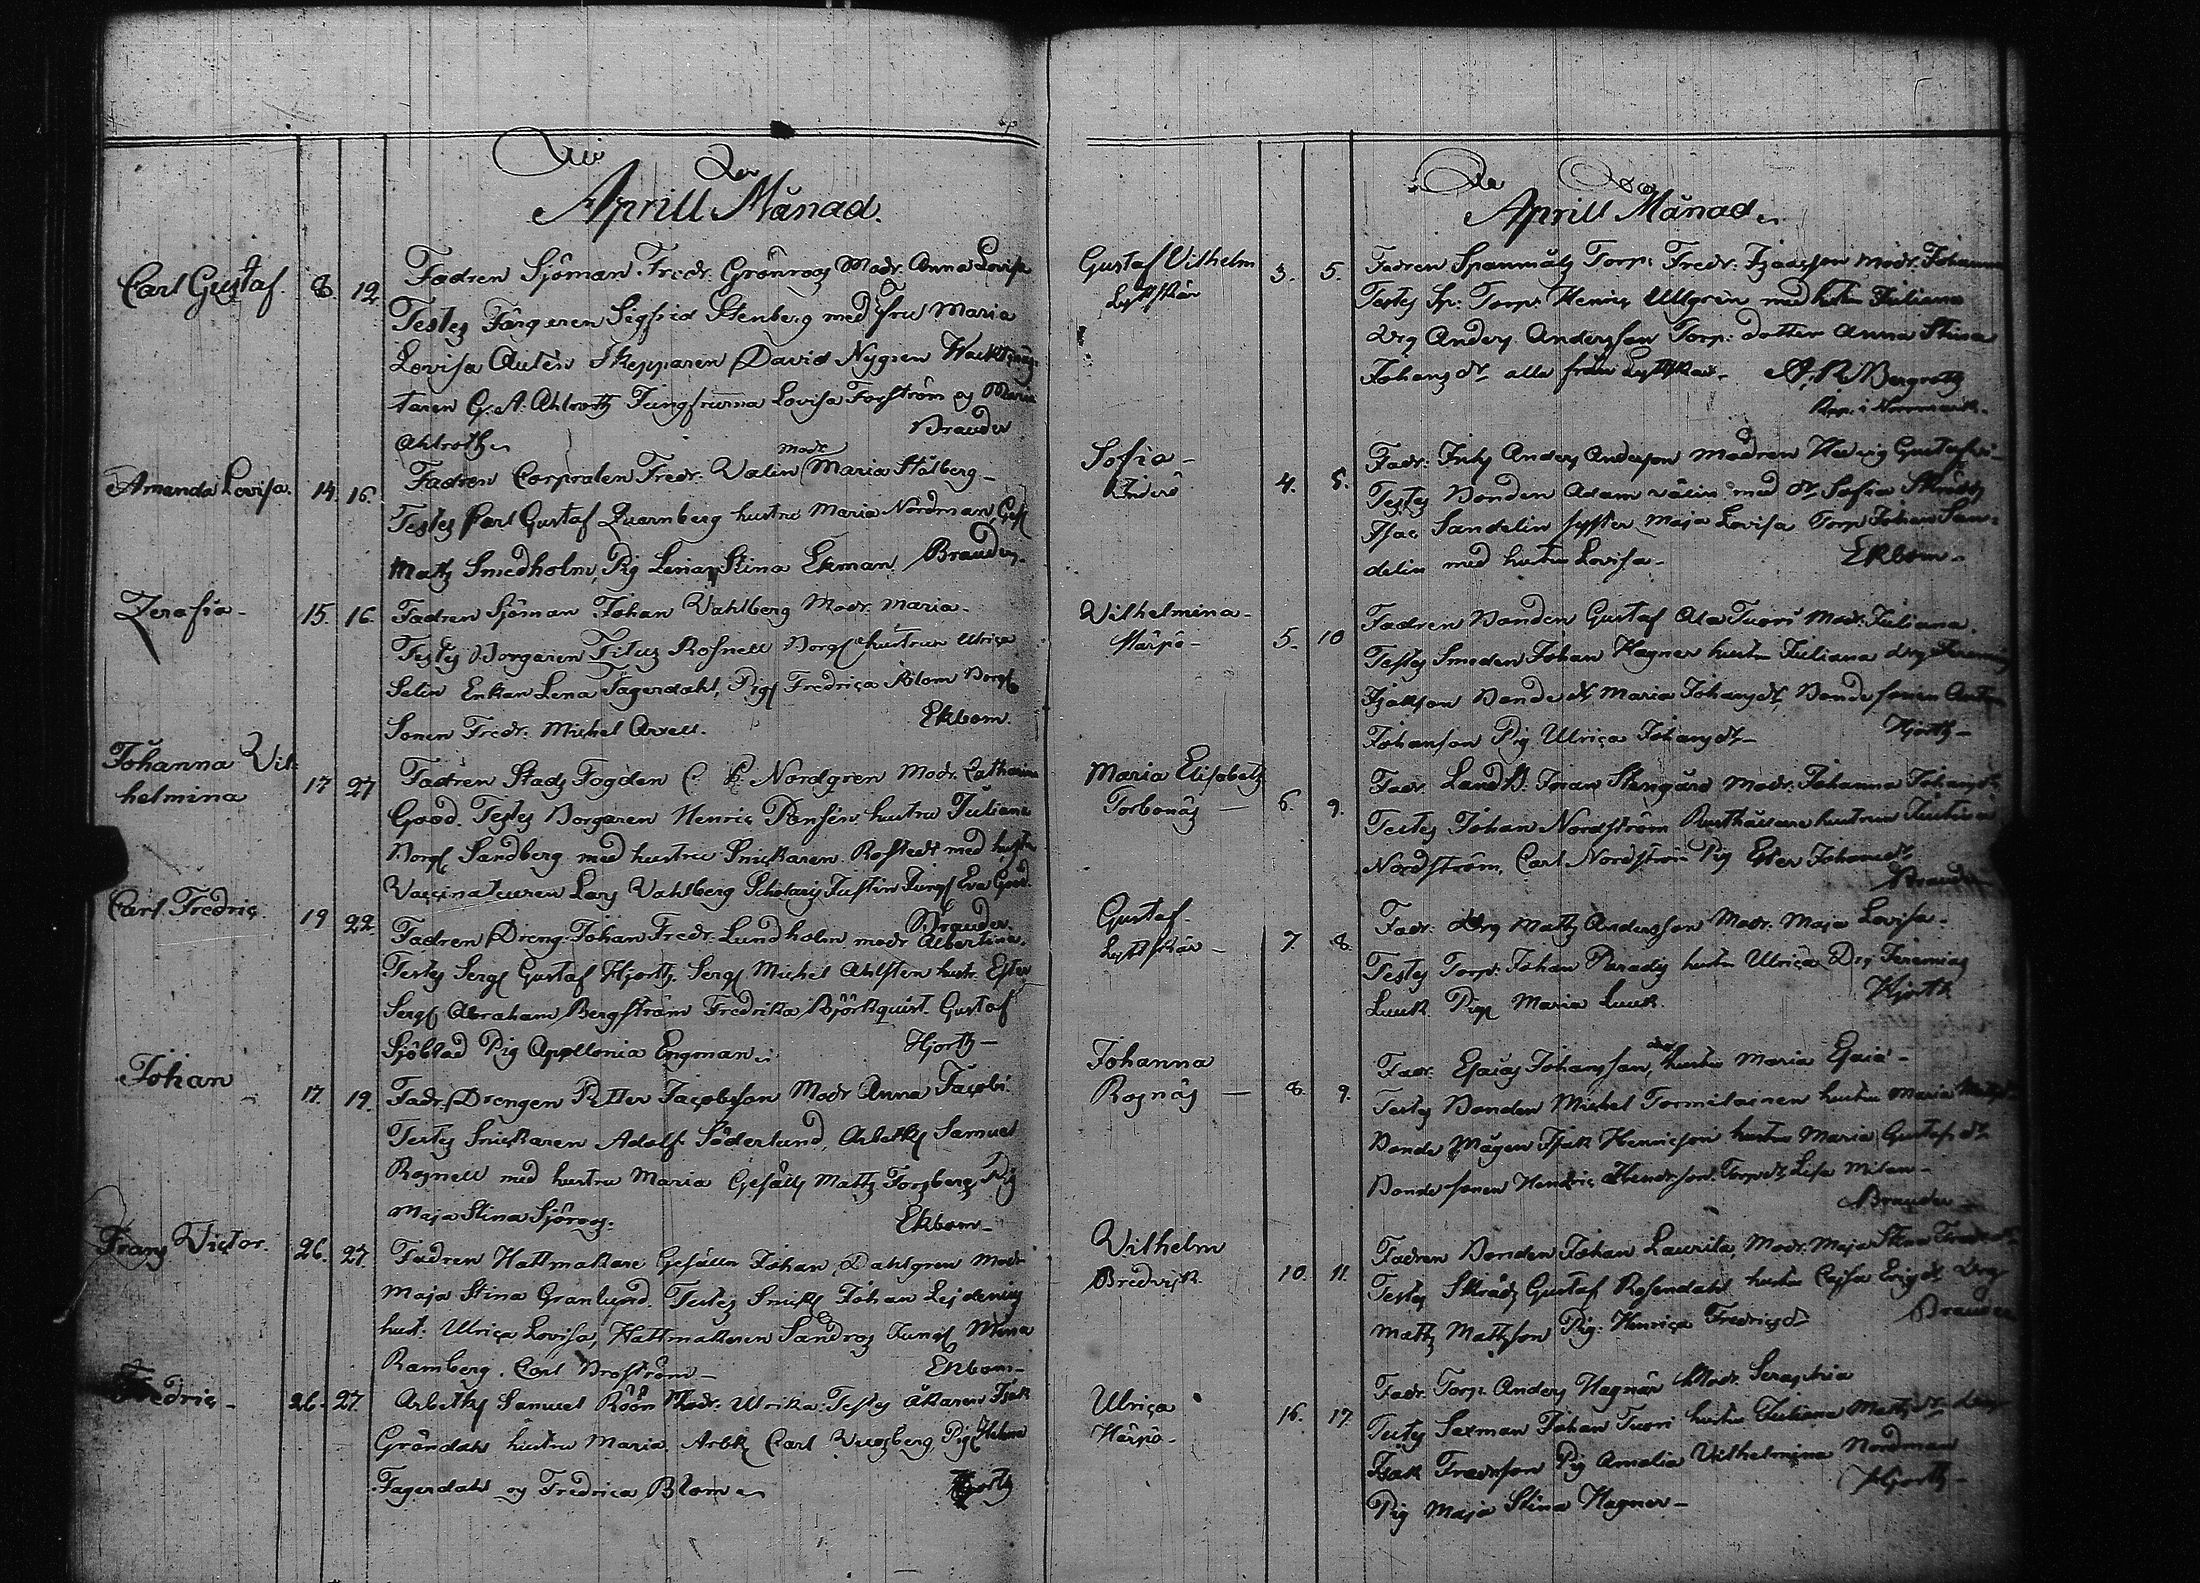 Aprill Månad.
Carl Gustaf. 8. 12. Fadren Sjöman Fredr. Grönroos Modr. Anna Lovisa
Testes Färgaren Sigfrid Stenberg med fru Maria
Lovisa Autén Skepparen David Nygren
taren G. A. Ahlroth Jungfruarna Lovisa Forström og Maria
Ahlroth Brander
Amanda Lovisa. 14. 16. Fadren Corpralen Fredr. Valin Modr Maria Stålberg
Testes Carl Gustaf Quarnberg hustru Maria Nordman
Matts Smedholm, Pig Lena Stina Ekman Brander
Zerafia 15. 16. Fadren Sjöman Johan Vahlberg Modr. Maria
Testes Borgaren Titus Rosnell hustrun Ulrica
Selin Enkan Lena Fagerdahl, Pig Fredrica Blom
Sonen Fredr. Michel Arell. Ekbom.
Johanna Vil-
helmina 17 27 Fadren Stads Fogden Nordgren Modr. Catharina
Good. Testes Borgaren Henric Ponsén hustru Juliana
Sandberg med hustru Snickaren Rostedt med hustru
Vaccinateuren Lars Vahlberg Justin Eva Good.
Brander
Carl Fredric. 19 22. Fadren Dreng. Johan Fredr. Lundholm modr Albertina.
Testes Gustaf Hjorth, Michel Ahlsten hustr. Ester
Abraham Bergström Fredrika Björkquist. Gustaf
Sjöblad Pig Apollonia Engman. Hjorth
Johan 17. 19. Fadr. Drengen Petter Jacobsson Modr Anna Jacobs.
Testes Snickaren Adolf Söderlund, Samuel
Rosnell med hustru Maria Gesälls Matts Forsberg Pig
Maja Stina Sjöroos. Ekbom
Frans Victor. 26. 27. Fadren Hattmakare Gesälln Johan Dahlgren Modr
Maja Stina Granlund. Testes Johan Lejdenius
hust. Ulrica Lovisa, Hattmakaren Sandroos Mina
Ramberg. Carl Broström Ekbom
Fredric 26. 27. Samuel Röön Modr. Ulrika. Testes Åkaren Isak
Gröndahl hustru Maria, Carl Pig Helena
Fagerdahl og Fredrica Blom Hjorth
Aprill Månad
Gustaf Vilhelm 3. 5. Fadren Spanmåls Torp. Fredr. Isacsson Modr. Johanna
Lyttskär Testes Sp. Torp. Henric Ullgrén med hustru Juliana
Drg Anders Andersson Torp. dotter Anna Stina
Johansdr alla från Lyttskär Bergroth
i Norrmark
Sofia 4. 5. Fadr. Anders Andersson Madren Hedvig Gustafs
Testes Bonden Adam Välin med dr Sofia
Isac Sandelin syster Maja Lovisa Torp. Johan San-
delin med hustru Lovisa Ekbom
Vilhelmina 5. 10 Fadren Bonden Gustaf Ala Tuori Modr. Juliana.
Härpö Testes Smeden Johan Hagner hustru Juliana Drg
Isaksson Bonde dr Maria Johansdr, Bonde sonen
Johansson Pig Ulrica Johansdr Hjorth
Maria Elisabeth 6. 9. Fadr. Johan Stengård Modr. Johanna Johansdr
Torbonäs Testes Johan Nordström Rusthållare hustrun Justina
Nordström, Carl Nordström Pig Ester Johansdr
Brander
Gustaf 7. 8. Fadr. Drg Matts Andersson Modr. Maja Lovisa
Lyttskär Testes Torp. Johan Paradis hustru Ulrica Drg Jeremias
Luuk. Pig Maria Luuk. Hjorth
Johanna 8. 9. Fadr. Esaias Johansson, hustru Maria Esaia
Rosnäs Testes Bonden Michel Tormilainen hustru Maria
Bonde Mågen Isak Henricsson hustru Maria Gustafsdr
Bonde sonen Hendric Hendrsson Torpdr Lisa Milan
Brander
Vilhelm 10. 11. Fadren Bonden Johan Laurila, Modr. Maja Stina
Bredvik Testes Skrädd Gustaf Rosendahl hustru Cajsa Ericsdr Drg
Matts Mattsson Pig. Henrica Fredricsdr Brander
Ulrica 16. 17. Fadr. Torp. Anders Hagnär Modr. Seraphia
Härpö Testes Sexman Johan Tuori hustru Juliana Mattsdr
Isak Fredrsson Pig Amalia Vilhelmina Nordman
Pig Maja Stina Hagner Hjorth